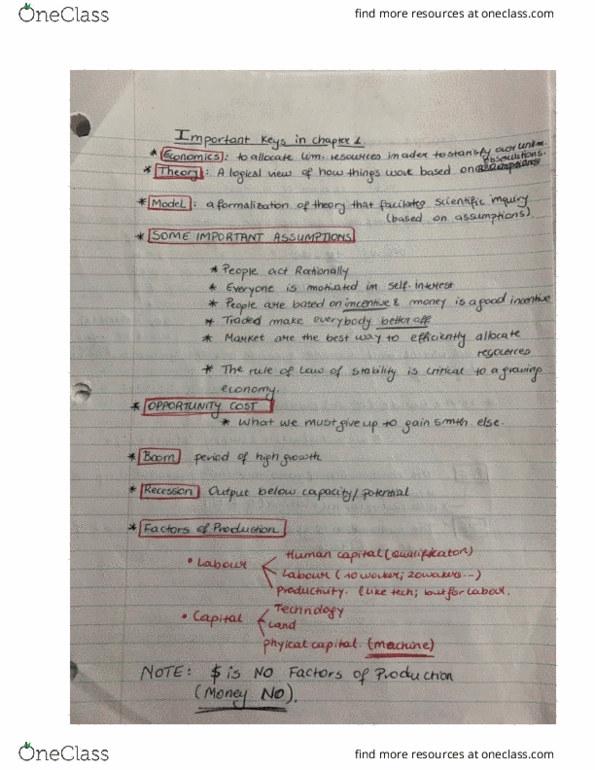 OneClass
find more resources at oneclass.com
Important Keys in chapter 1
* Economics: to allocate lim. resources in order to satisfy our unlim.
* Theory: A logical view of how things work based on assumptions
* Model: a formalization of theory that facilates scientific inquiry
(based on assumptions).
* SOME IMPORTANT ASSUMPTIONS
* People act Rationally
* Everyone is motivated in self-interest
* People are based on incentive & money is a good incentive
* Traded make everybody better off
* Market are the best way to efficiently allocate
resources
* The rule of law of stability is critical to a growing
economy.
* OPPORTUNITY COST
* What we must give up to gain smth. else.
* Boom period of high growth
* Recession Output below capacity/potential
* Factors of Production
• Labour
Human capital (qualification)
Labour (10 worker; 20 wakers...)
Productivity. (like tech; but for labour.
• Capital
Technology
Land
phyical capital. (machine)
NOTE: $ is NO Factors of Production
(Money NO).
OneClass
find more resources at oneclass.com